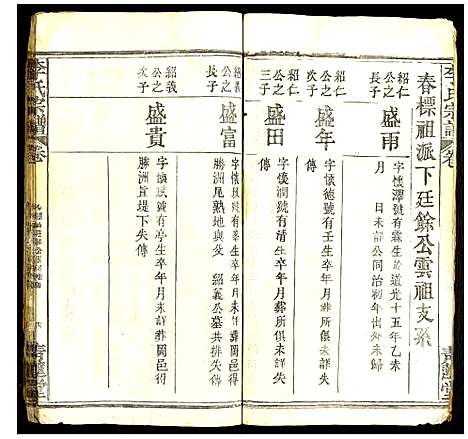 李氏宗譜
卷
春標祖派下廷餘公雲祖支系
紹仁
公之
長子
盛雨
字懷澤號有霖生於道光十五年乙未
月　日未詳公同治初年出外未歸
紹仁
公之
次子
盛年
字懷德號有壬生卒年月葬所俱未詳失
傳
紹仁
公之
三子
盛田
字懷潤號有清生卒年月葬所俱未詳失
傳
紹義
公之
長子
盛富
字懷 號有 生卒年月未詳葬岡邑得
勝洲尾熟地與父　紹義公墓共排失傳
紹義
公之
次子
盛貴
字懷 號有亭生卒年月未詳葬岡邑得
勝洲直堤下失傳
李氏宗譜
卷